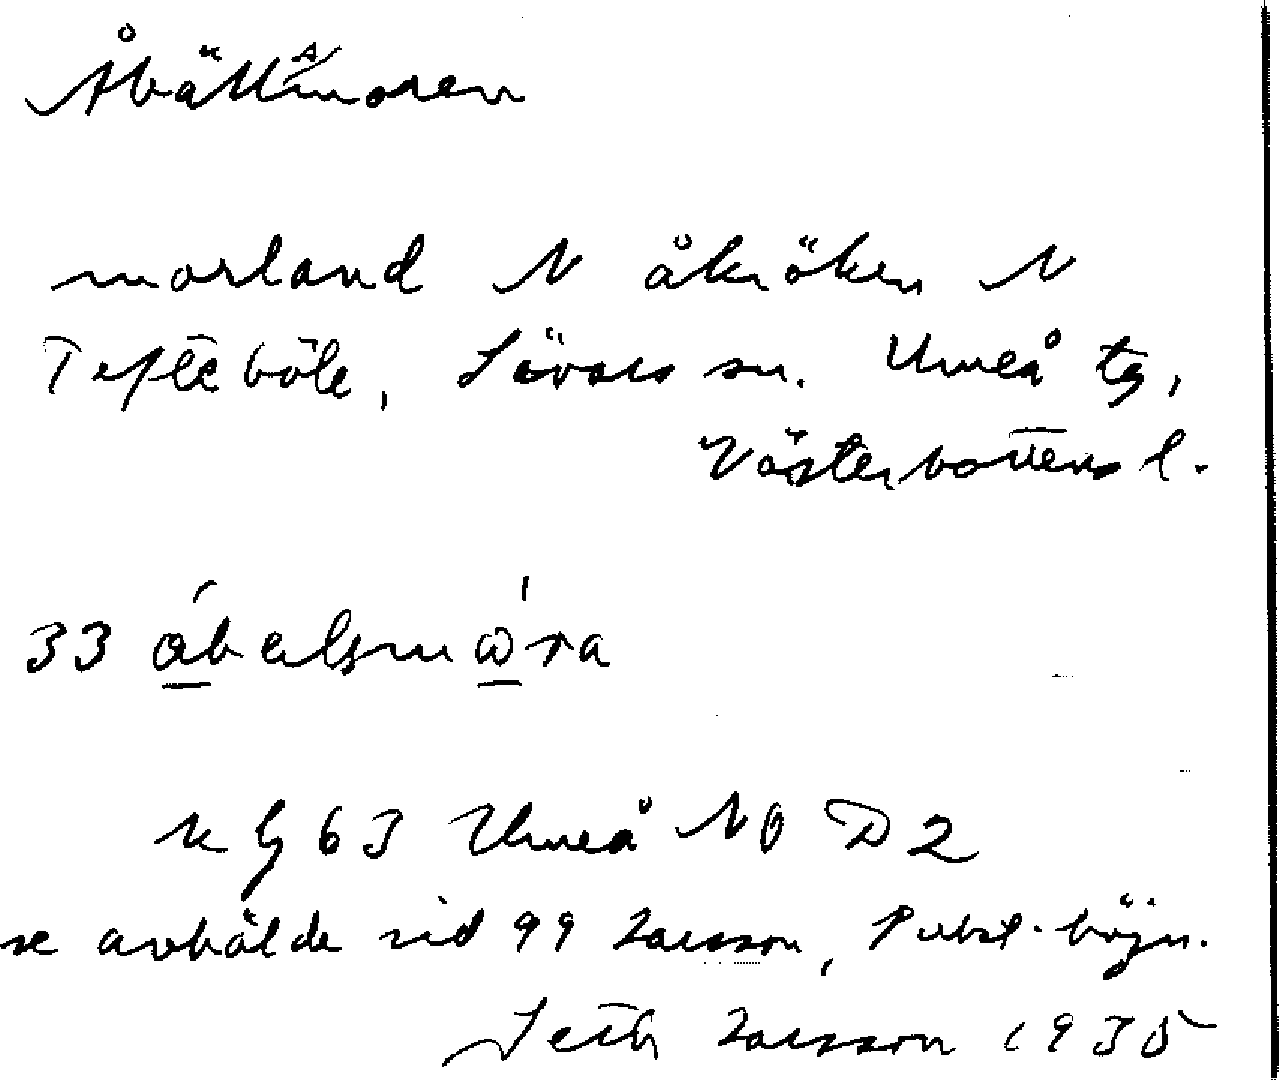 Åbällsmoren
morland N åkröken N
Tefteböle, Sävars sn. Umeå tg,
Västerbottens l.
33 ábalsmώ̱ra
K G 63 Umeå NO D2
se avhälde sid 99 Larsson, Subst.-böjn.
Seth Larsson 1935